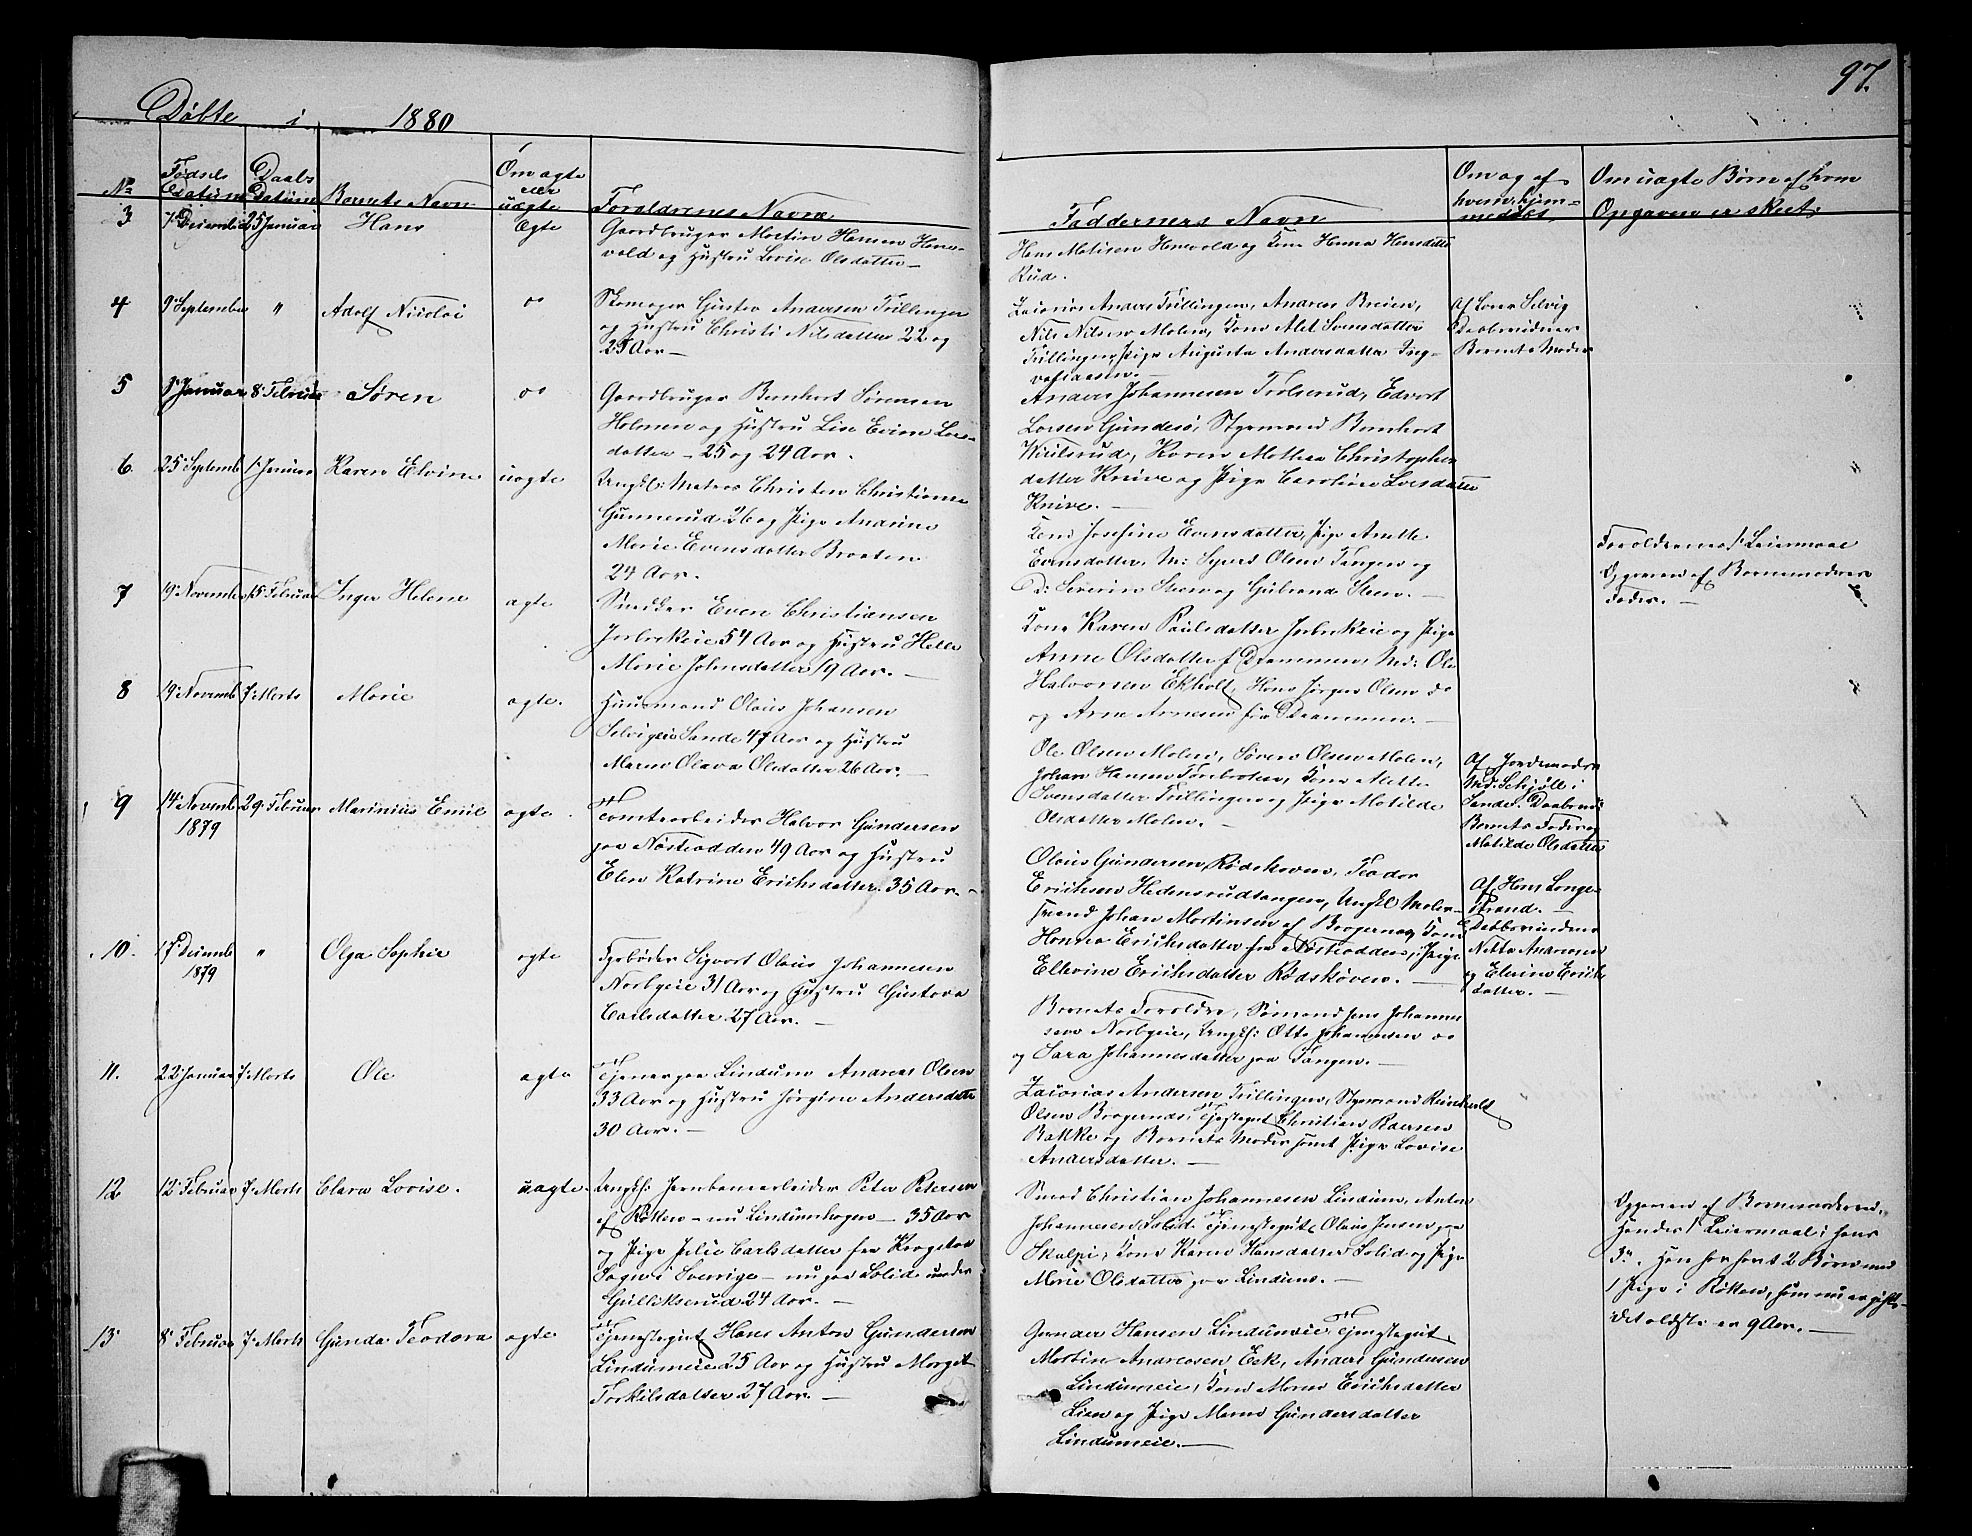 97.
Døbte i 1880
No
Fødsels Datum
Daabs Datum
Barnets Navn
Om ægte eller uægte
Forældrenes Navne
Faddernes Navn
Om og af hvem hjemmedøbt
Om uægte Børn af hvem Opgaven er skeet.
3 7 December 25 Januar Hans Ægte
Gaardbruger Martin Hansen
vold og Hustru Lovise Olsdatter
og Kone
Rud.
4 9 September " Adolf Nicolai do
Skomager Gustav Andersen Trillingen
og Hustru Christi Nilsdatter 22 og
25 Aar
Zacarias Anders Trillingen, Andreas Breien,
Nils Nilsen Molen, Kone Alet Svensdatter
Trillingen, Pige Augusta Andersdatter
Af Lars Selvig
Daabsvidner
Barnets Moder
5 Januar 8 Februar Søren do
Gaardbruger Bernhart Sørensen
Holmen og Hustru Lise Evine Lars-
datter 25 og 24 Aar.
Anders Johannesen Trolsrud, Edvart
Larsen Gundesø, Styrmand Bernhart
Karen Mathea Christopher
datter Knive og Pige Caroline Larsdatter
Knive.
6 25 Septemb 1 Januar Karen Elvine uægte
Ungkl: Matros Christen Christiansen
Gunnerud 26 og Pige Andrine
Marie Evensdatter Braaten
24 Aar.
Kone Josefine Evensdatter, Pige Anette
Evensdatter, M: Syvert Olsen Tangen og
D: Severin Steen og Gulbrand Steen.
Forældrenes 1ste Leiermaal
Opgaven af Barnemoderens
Fader.
7 19 November 15 Februar Inger Helene ægte
Snedker Even Christiansen
54 Aar og Hustru Helle
Marie Johnsdatter 19 Aar.
Kone Karen Paulsdatter og Pige
Anne Olsdatter af Drammen, Md: Ole
Halvorsen Ekholt, Hans Jørgen Olsen do
og Arne Arnesen fra Drammen.
8 19 Novemb 7 Marts Marie ægte.
Huusmand Olaus Johansen
Selvigeie Sande 47 Aar og Hustru
Maren Olava Olsdatter 26 Aar.
Ole Olsen Molen, Søren Olsen Molen,
Johan Hansen Kone Mette
Svensdatter Trillingen og Pige Matilde
Olsdatter Molen.
Af Jordemoder
Md. Schjøll i
Sande. Daabsvid:
Barnets Fader og
Matilde Olsdatter
9 14 Novemb 1879 29 Februar Marinius Emil ægte.
Tomtearbeider Halvor Gundersen
paa Nøsteodden 49 Aar og Hustru
Elen Katrine Erichsdatter 35 Aar
Olaus Gundersen Rødskoven, Teodor
Erichsen Hedensrudtangen, Ungkl Maler
Johan Martinsen af Bragernes, Kone
Hanna Erichsdatter fra Nøsteodden, Pige
Ellevine Erichsdatter Rødskoven.
Af Hans Lange-
strand.
Daabsvidner
Netta Andersen
og Elevine Erichs
datter.
10. 17 Decemb 1879 " Olga Sophie ægte
Fyrbøder Sigvart Olaus Johannesen
Norbyeie 31 Aar og Hustru Gustava
Carlsdatter 27 Aar.
Barnets Forældre, Sømand Jens Johanne-
sen Norbyeie, Ungkl: Otto Johannesen do
og Sara Johannesdatter paa Tangen.
11. 22 Januar 7 Marts Ole ægte
Tjener paa Lindum Andreas Olsen
33 Aar og Hustru Jørgine Andersdatter
30 Aar.
Zacarias Andersen Trillingen, Styrmand Reinholdt
Olsen Bragernes, Tjenestegut Christian
Bakke og Barnets Moder samt Pige Lovise
Andersdatter.
12 12 Februar 7 Marts Clara Lovise. uægte.
Ungkl: Jernbanearbeider Peter Petersen
af Røken nu Lindumhagen 35 Aar
og Pige Julie Carlsdatter fra Krogstad
Sogn i Sverrige nu paa Solid under
Gulliksrud 24 Aar.
Smed Christian Johannesen Lindum, Anton
Johannesen Solid, Tjenestegut Olaus Jensen paa
Skalpi, Kone Karen Hansdatter Solid og Pige
Marie Olsdatter paa Lindum.
Opgaven af Barnemoderen,
hendes 1ste Leiermaal, hans
3de. Han har havt 2 Børn med
1 Pige i Røken, som nu er gift,
det ældste er 9 Aar.
13 8 Februar 7 Marts Gunda Teodora ægte
Tjenestegut Hans Anton Gundersen
Lindumeie 25 Aar og Hustru Margit
Torkilsdatter 27 Aar.
Gunder Hansen Lindumeie, Tjenestegut
Martin Andreasen Eek, Anders Gundersen
Lindumeie, Kone Maren Erichsdatter
Lien og Pige Maren Gundersdatter
Lindumeie.